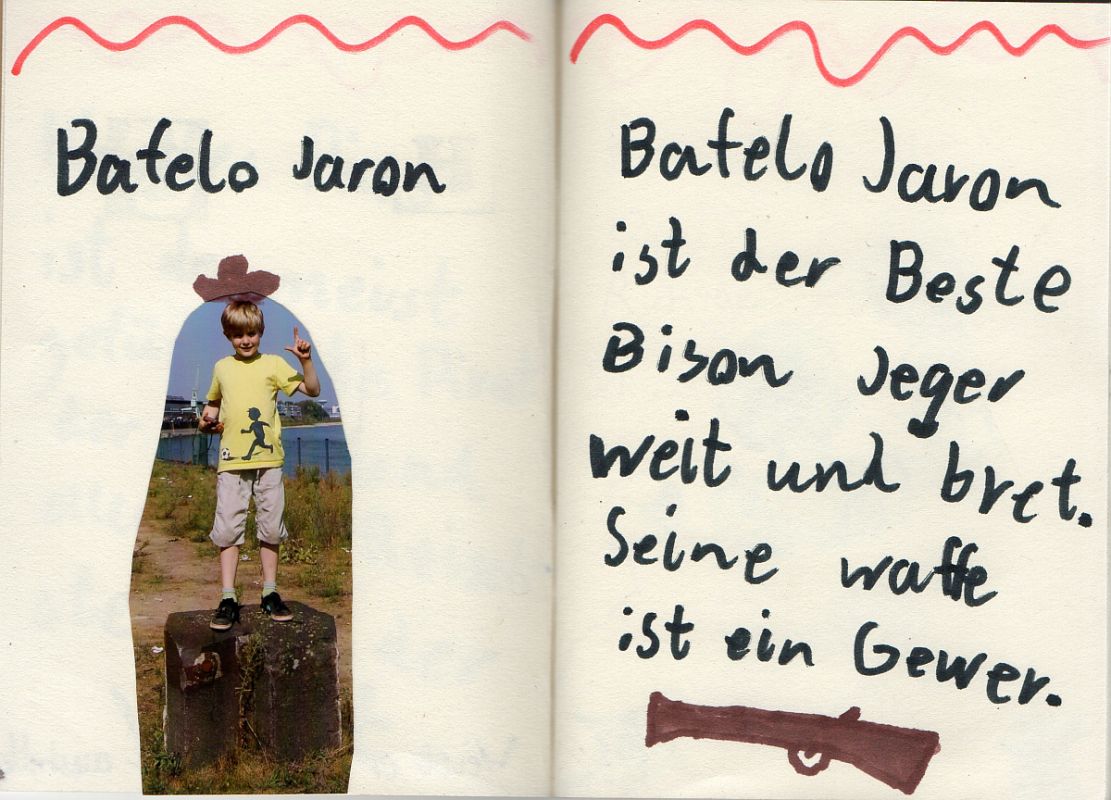 Bafelo Jaron
Bafelo Jaron
ist der Beste
Bison Jeger
weit und bret.
Seine waffe
ist ein Gewer.